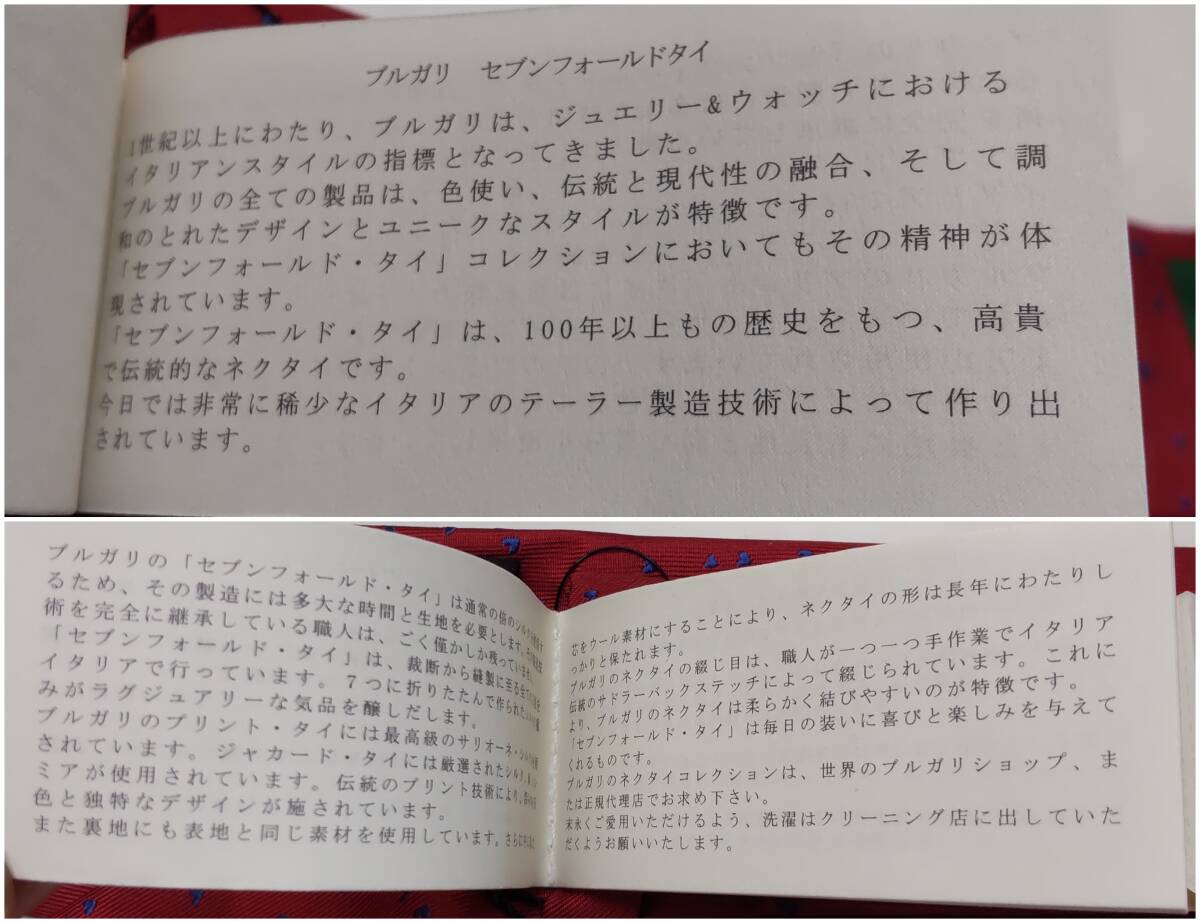 ブルガリ　セブンフォールドタイ
1世紀以上にわたり、ブルガリは、ジュエリー&ウォッチにおける
イタリアンスタイルの指標となってきました。
ブルガリの全ての製品は、色使い、伝統と現代性の融合、そして調
和のとれたデザインとユニークなスタイルが特徴です。
「セブンフォールド・タイ」コレクションにおいてもその精神が体
現されています。
「セブンフォールド・タイ」は、100年以上もの歴史をもつ、高貴
で伝統的なネクタイです。
今日では非常に稀少なイタリアのテーラー製造技術によって作り出
されています。
ブルガリの「セブンフォールド・タイ」は通常の倍の
るため、その製造には多大な時間と生地を必要とします。
術を完全に継承している職人は、ごく僅かしか残っていません。
「セブンフォールド・タイ」は、裁断から縫製に至る全ての
イタリアで行っています。7つに折りたたんで作られた
みがラグジュアリーな気品を醸しだします。
ブルガリのプリント・タイには最高級のサリオーネ・
されています。ジャカード・タイには厳選されたシルク、
ミアが使用されています。伝統のプリント技術により、
色と独特なデザインが施されています。
また裏地にも表地と同じ素材を使用しています。さらに
芯をウール素材にすることにより、ネクタイの形は長年にわたりし
っかりと保たれます。
ブルガリのネクタイの綴じ目は、職人が一つ一つ手作業でイタリア
伝統のサドラーバックステッチによって綴じられています。これに
より、ブルガリのネクタイは柔らかく結びやすいのが特徴です。
「セブンフォールド・タイ」は毎日の装いに喜びと楽しみを与えて
くれるものです。
ブルガリのネクタイコレクションは、世界のブルガリショップ、ま
たは正規代理店でお求め下さい。
末永くご愛用いただけるよう、洗濯はクリーニング店に出していた
だくようお願いいたします。